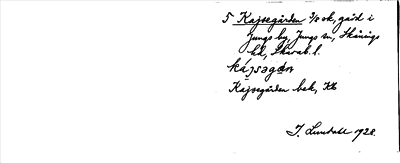 5 Kajsegården 3/8 sk, gård i
Jungs by, Jungs sn, Skånings
hd, Skarab. l.
kájsagɑ̀ɳ
Kajsegården bek, Kb
J. Lundahl 1928.